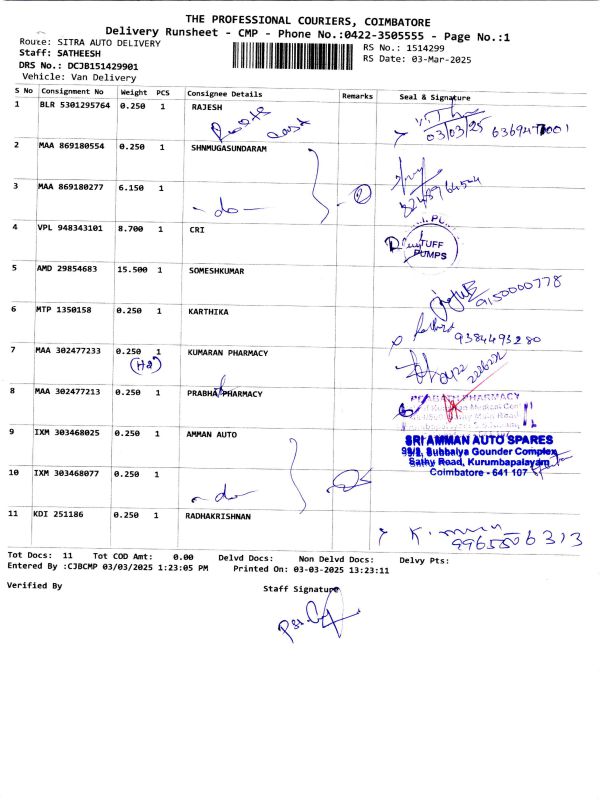 THE PROFESSIONAL COURIERS, COIMBATORE
Delivery Runsheet - CMP - Phone No.:0422-3505555 - Page No.:1
Route: SITRA AUTO DELIVERY
RS No.: 1514299
Staff: SATHEESH
RS Date: 03-Mar-2025
DRS No.: DCJB151429901
Vehicle: Van Delivery
S No Consignment No Weight PCS Consignee Details Remarks Seal & Signature
1 BLR 5301295764 0.250 1 RAJESH
03/03/25
2 MAA 869180554 0.250 1 SHNMUGASUNDARAM
3 MAA 869180277 6.150 1
- do - 2
4 VPL 948343101 8.700 1 CRI
TUFF
PUMPS
5 AMD 29854683 15.500 1 SOMESHKUMAR
9150000778
6 MTP 1350158 0.250 1 KARTHIKA
9384493280
7 MAA 302477233 0.250 1 KUMARAN PHARMACY
8 MAA 302477213 0.250 1 PRABHA PHARMACY
PHARMACY
9 IXM 303468025 0.250 1 AMMAN AUTO
SRI AMMAN AUTO SPARES
99/2, Subbaiya Gounder Complex
Sathy Road, Kurumbapalayam
Coimbatore - 641 107
10 IXM 303468077 0.250 1
- do -
11 KDI 251186 0.250 1 RADHAKRISHNAN
Tot Docs: 11 Tot COD Amt: 0.00 Delvd Docs: Non Delvd Docs: Delvy Pts:
Entered By :CJBCMP 03/03/2025 1:23:05 PM Printed On: 03-03-2025 13:23:11
Verified By Staff Signature